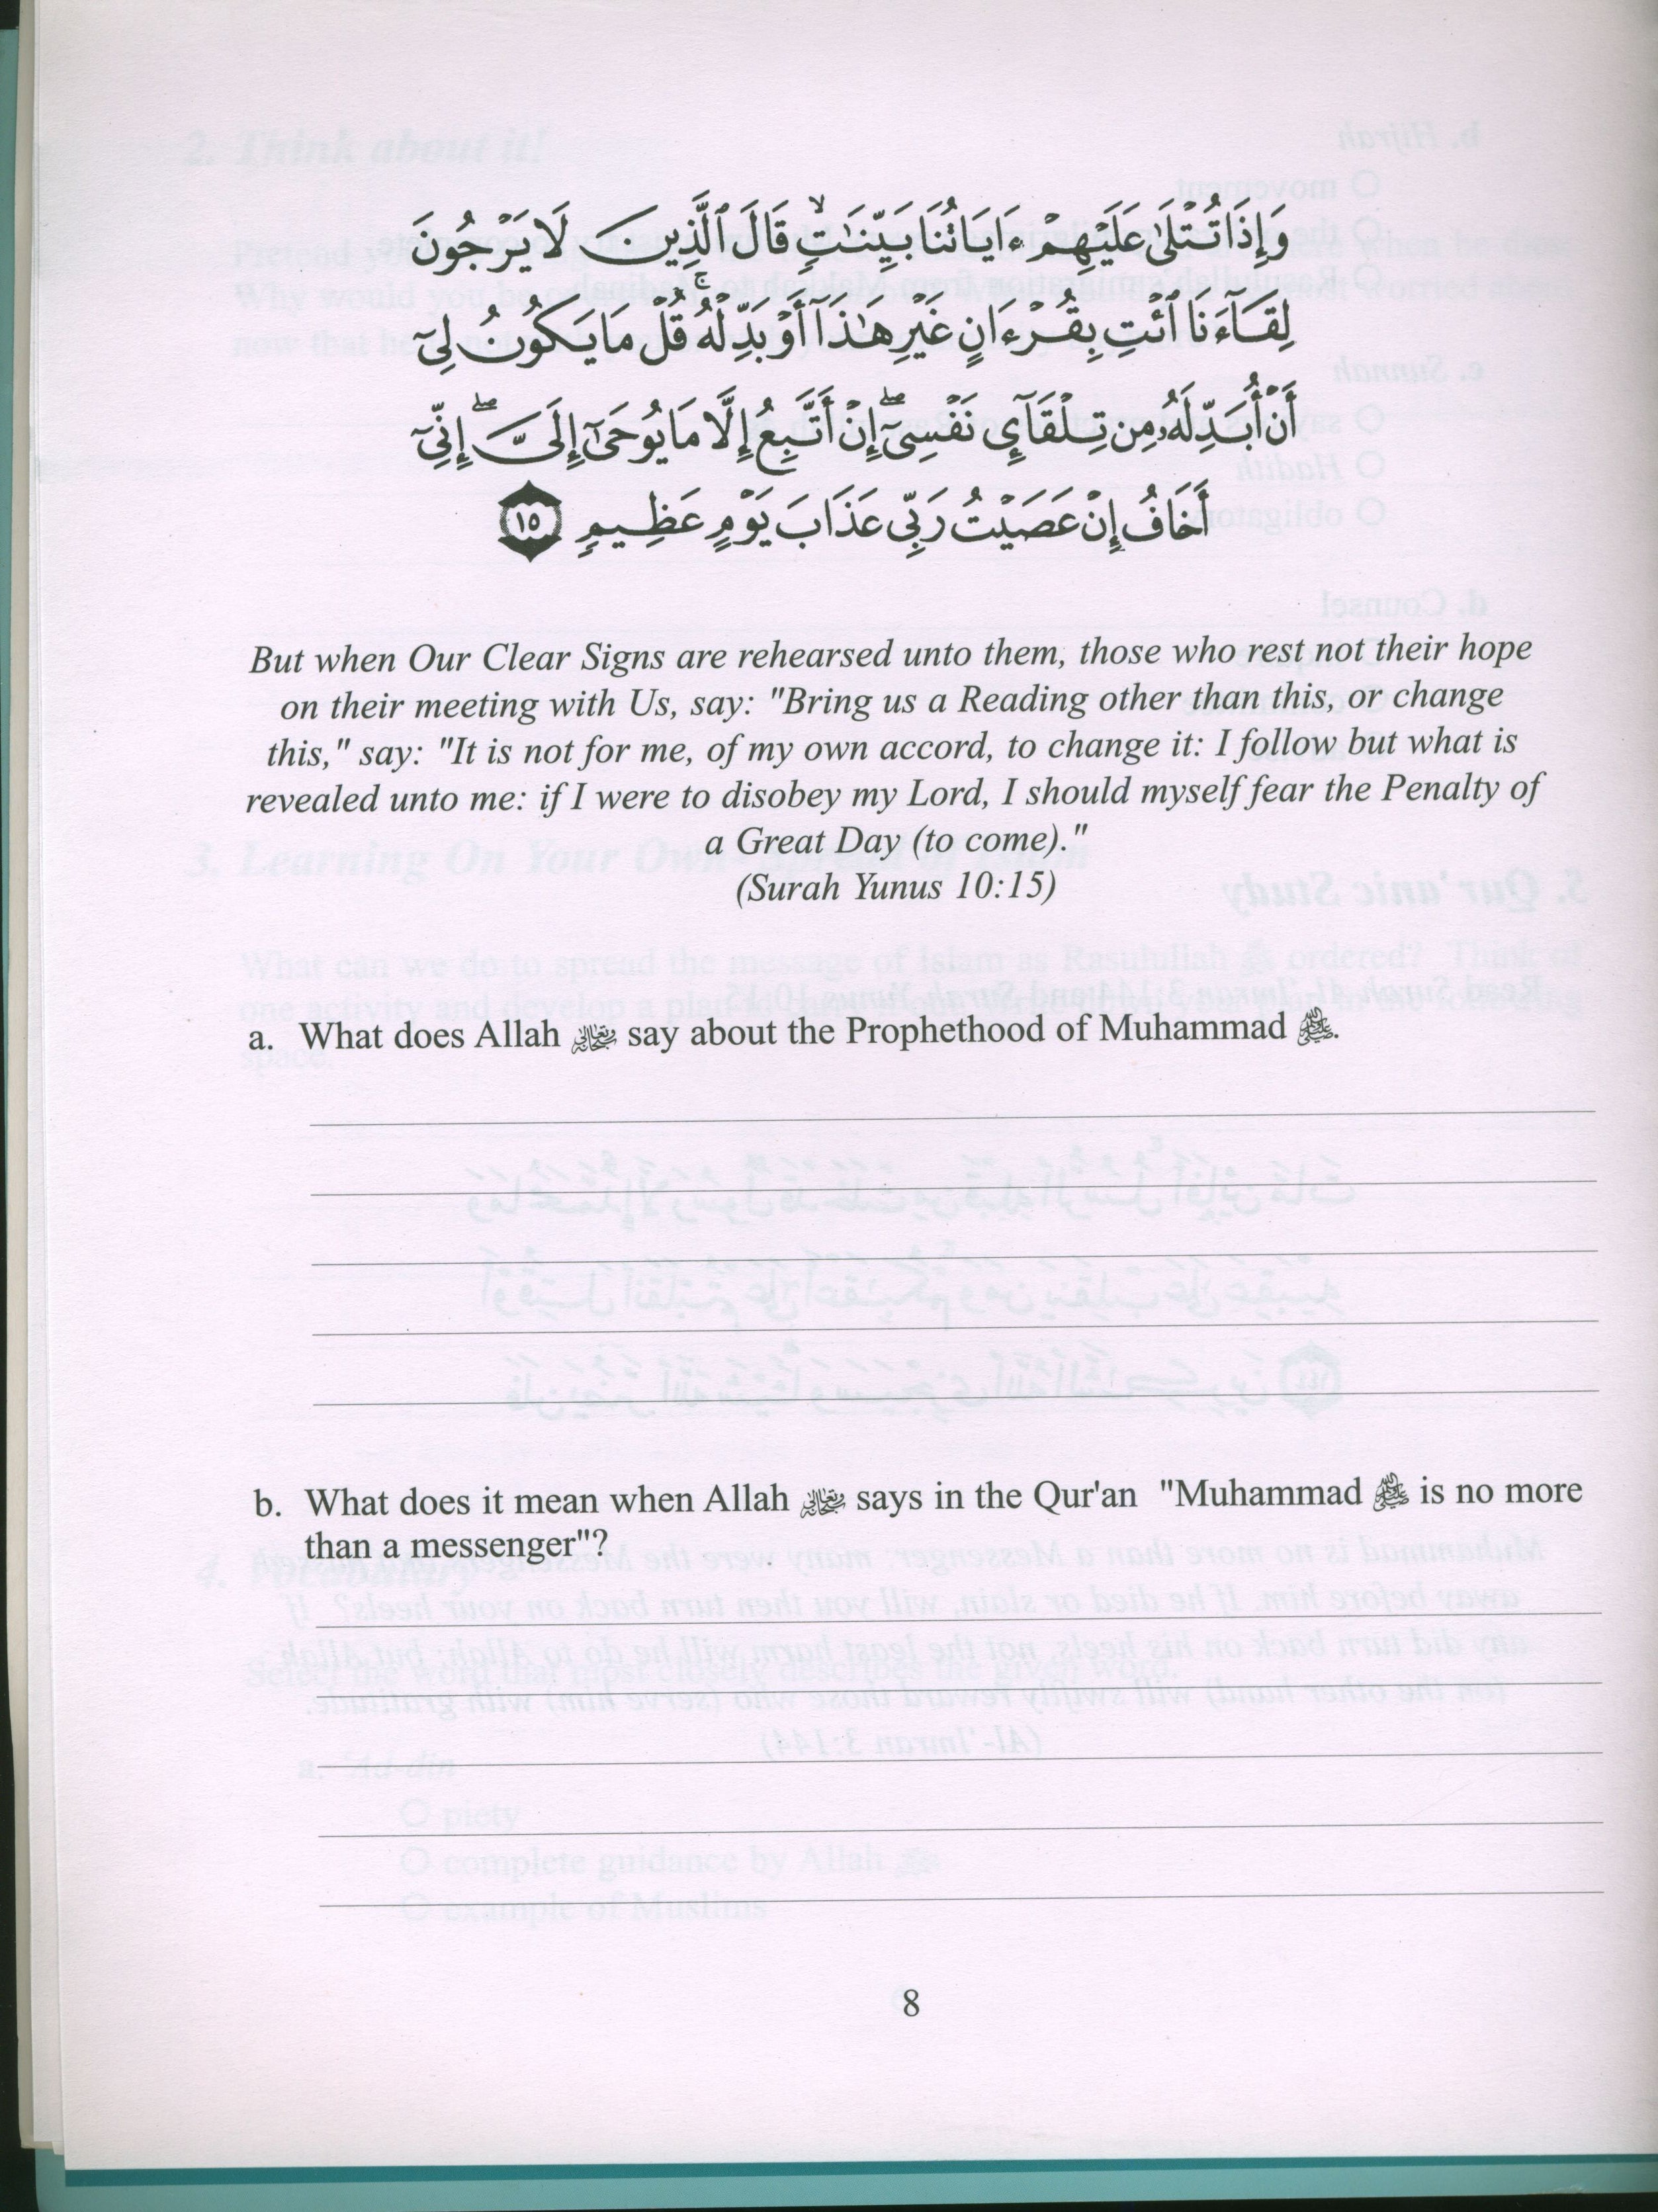 وَإِذَا تُتْلَىٰ عَلَيْهِمْ ءَايَاتُنَا بَيِّنَٰتٍ ۙ قَالَ ٱلَّذِينَ لَا يَرْجُونَ
لِقَآءَنَا ٱئْتِ بِقُرْءَانٍ غَيْرِ هَٰذَآ أَوْ بَدِّلْهُ ۚ قُلْ مَا يَكُونُ لِىٓ
أَنْ أُبَدِّلَهُۥ مِن تِلْقَآئِ نَفْسِىٓ ۖ إِنْ أَتَّبِعُ إِلَّا مَا يُوحَىٰٓ إِلَىَّ ۖ إِنِّىٓ
أَخَافُ إِنْ عَصَيْتُ رَبِّى عَذَابَ يَوْمٍ عَظِيمٍ ١٥
But when Our Clear Signs are rehearsed unto them, those who rest not their hope
on their meeting with Us, say: "Bring us a Reading other than this, or change
this," say: "It is not for me, of my own accord, to change it: I follow but what is
revealed unto me: if I were to disobey my Lord, I should myself fear the Penalty of
a Great Day (to come)."
(Surah Yunus 10:15)
a. What does Allah say about the Prophethood of Muhammad ﷺ.
b. What does it mean when Allah says in the Qur'an "Muhammad ﷺ is no more
than a messenger"?
8